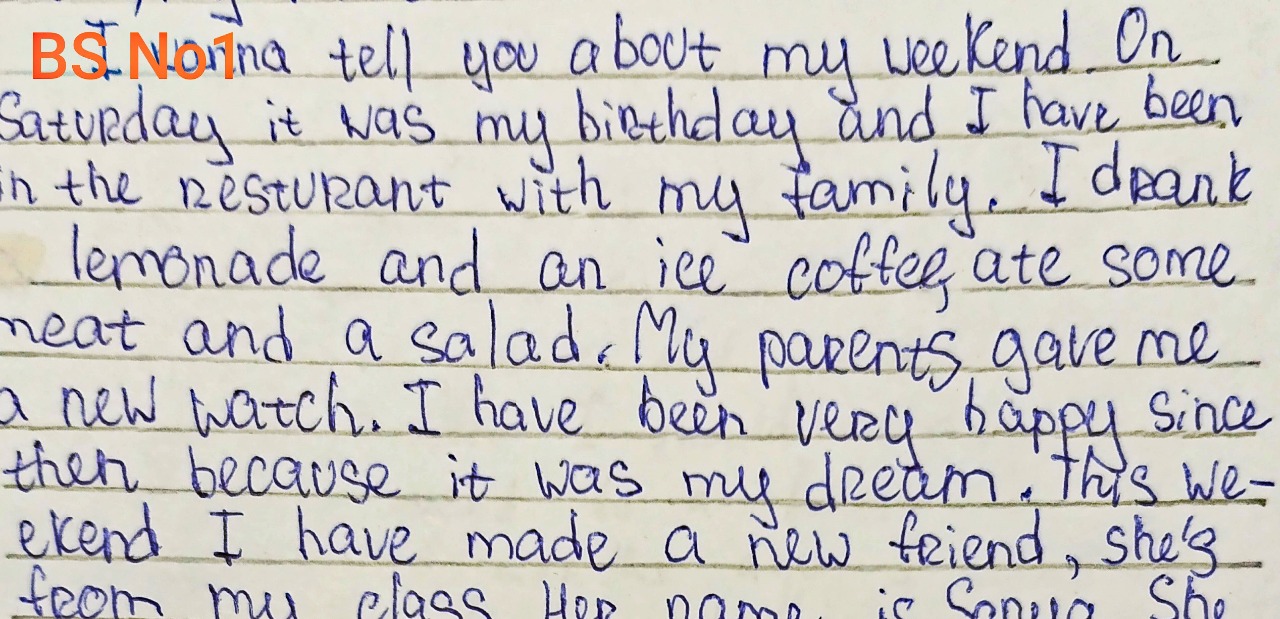 BS No1
I wanna tell you about my weekend. On
Saturday it was my birthday and I have been
in the resturant with my family. I drank
lemonade and an ice coffee, ate some
meat and a salad. My parents gave me
a new watch. I have been very happy since
then because it was my dream. This we-
ekend I have made a new friend, she's
from my class. Her name is Sonya. She